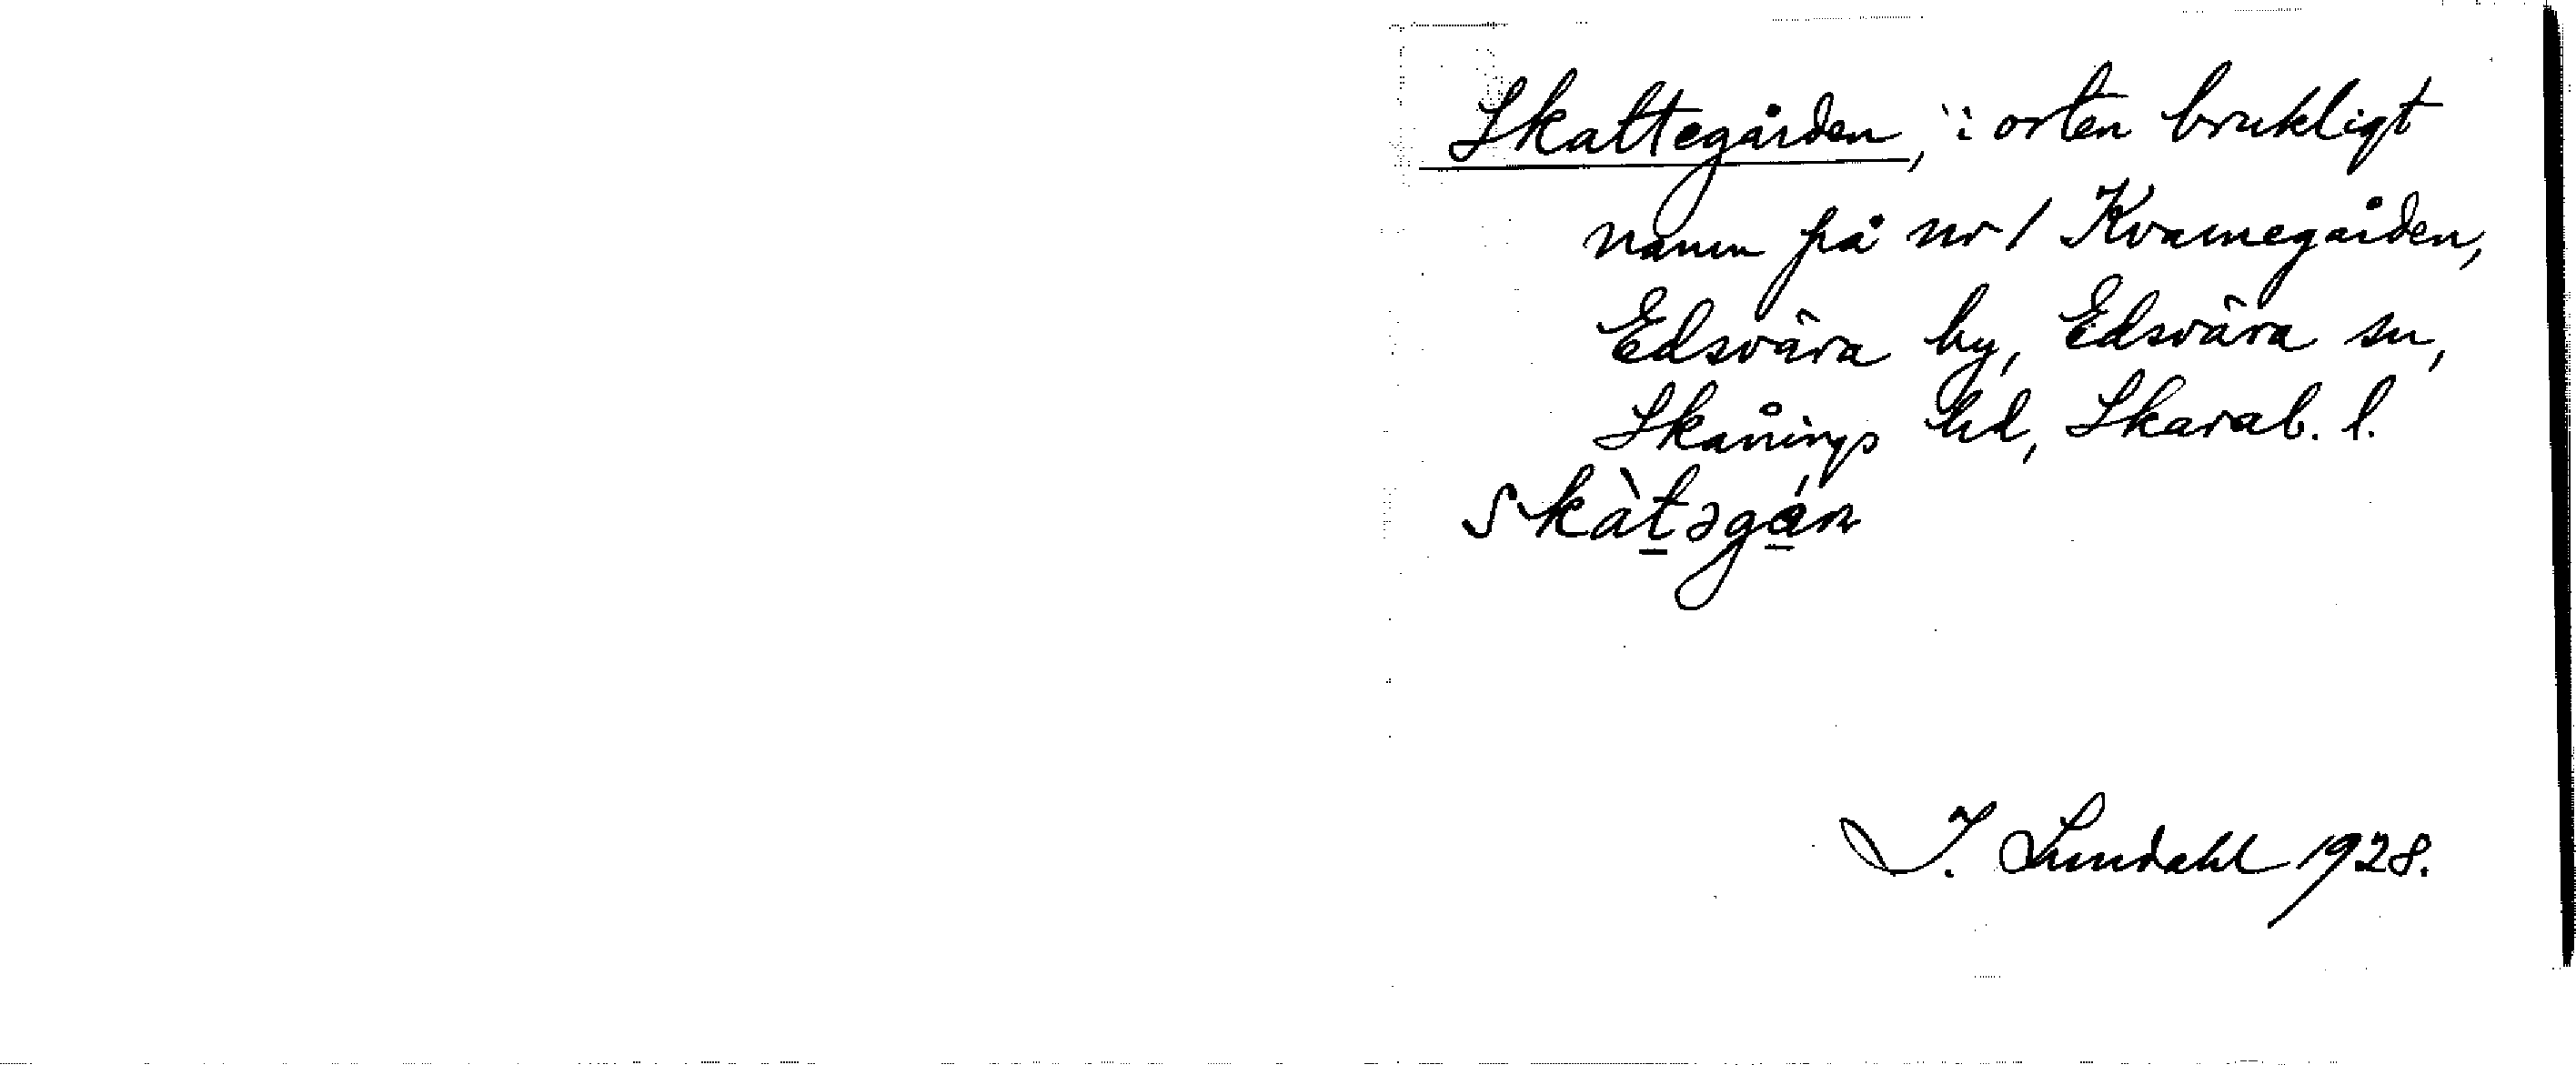 Skattegården, i orten brukligt
namn på nr 1 Kvarnegården,
Edsvära by, Edsvära sn,
Skånings hd, Skarab. l.
skàtəgán
I. Lundahl 1928.